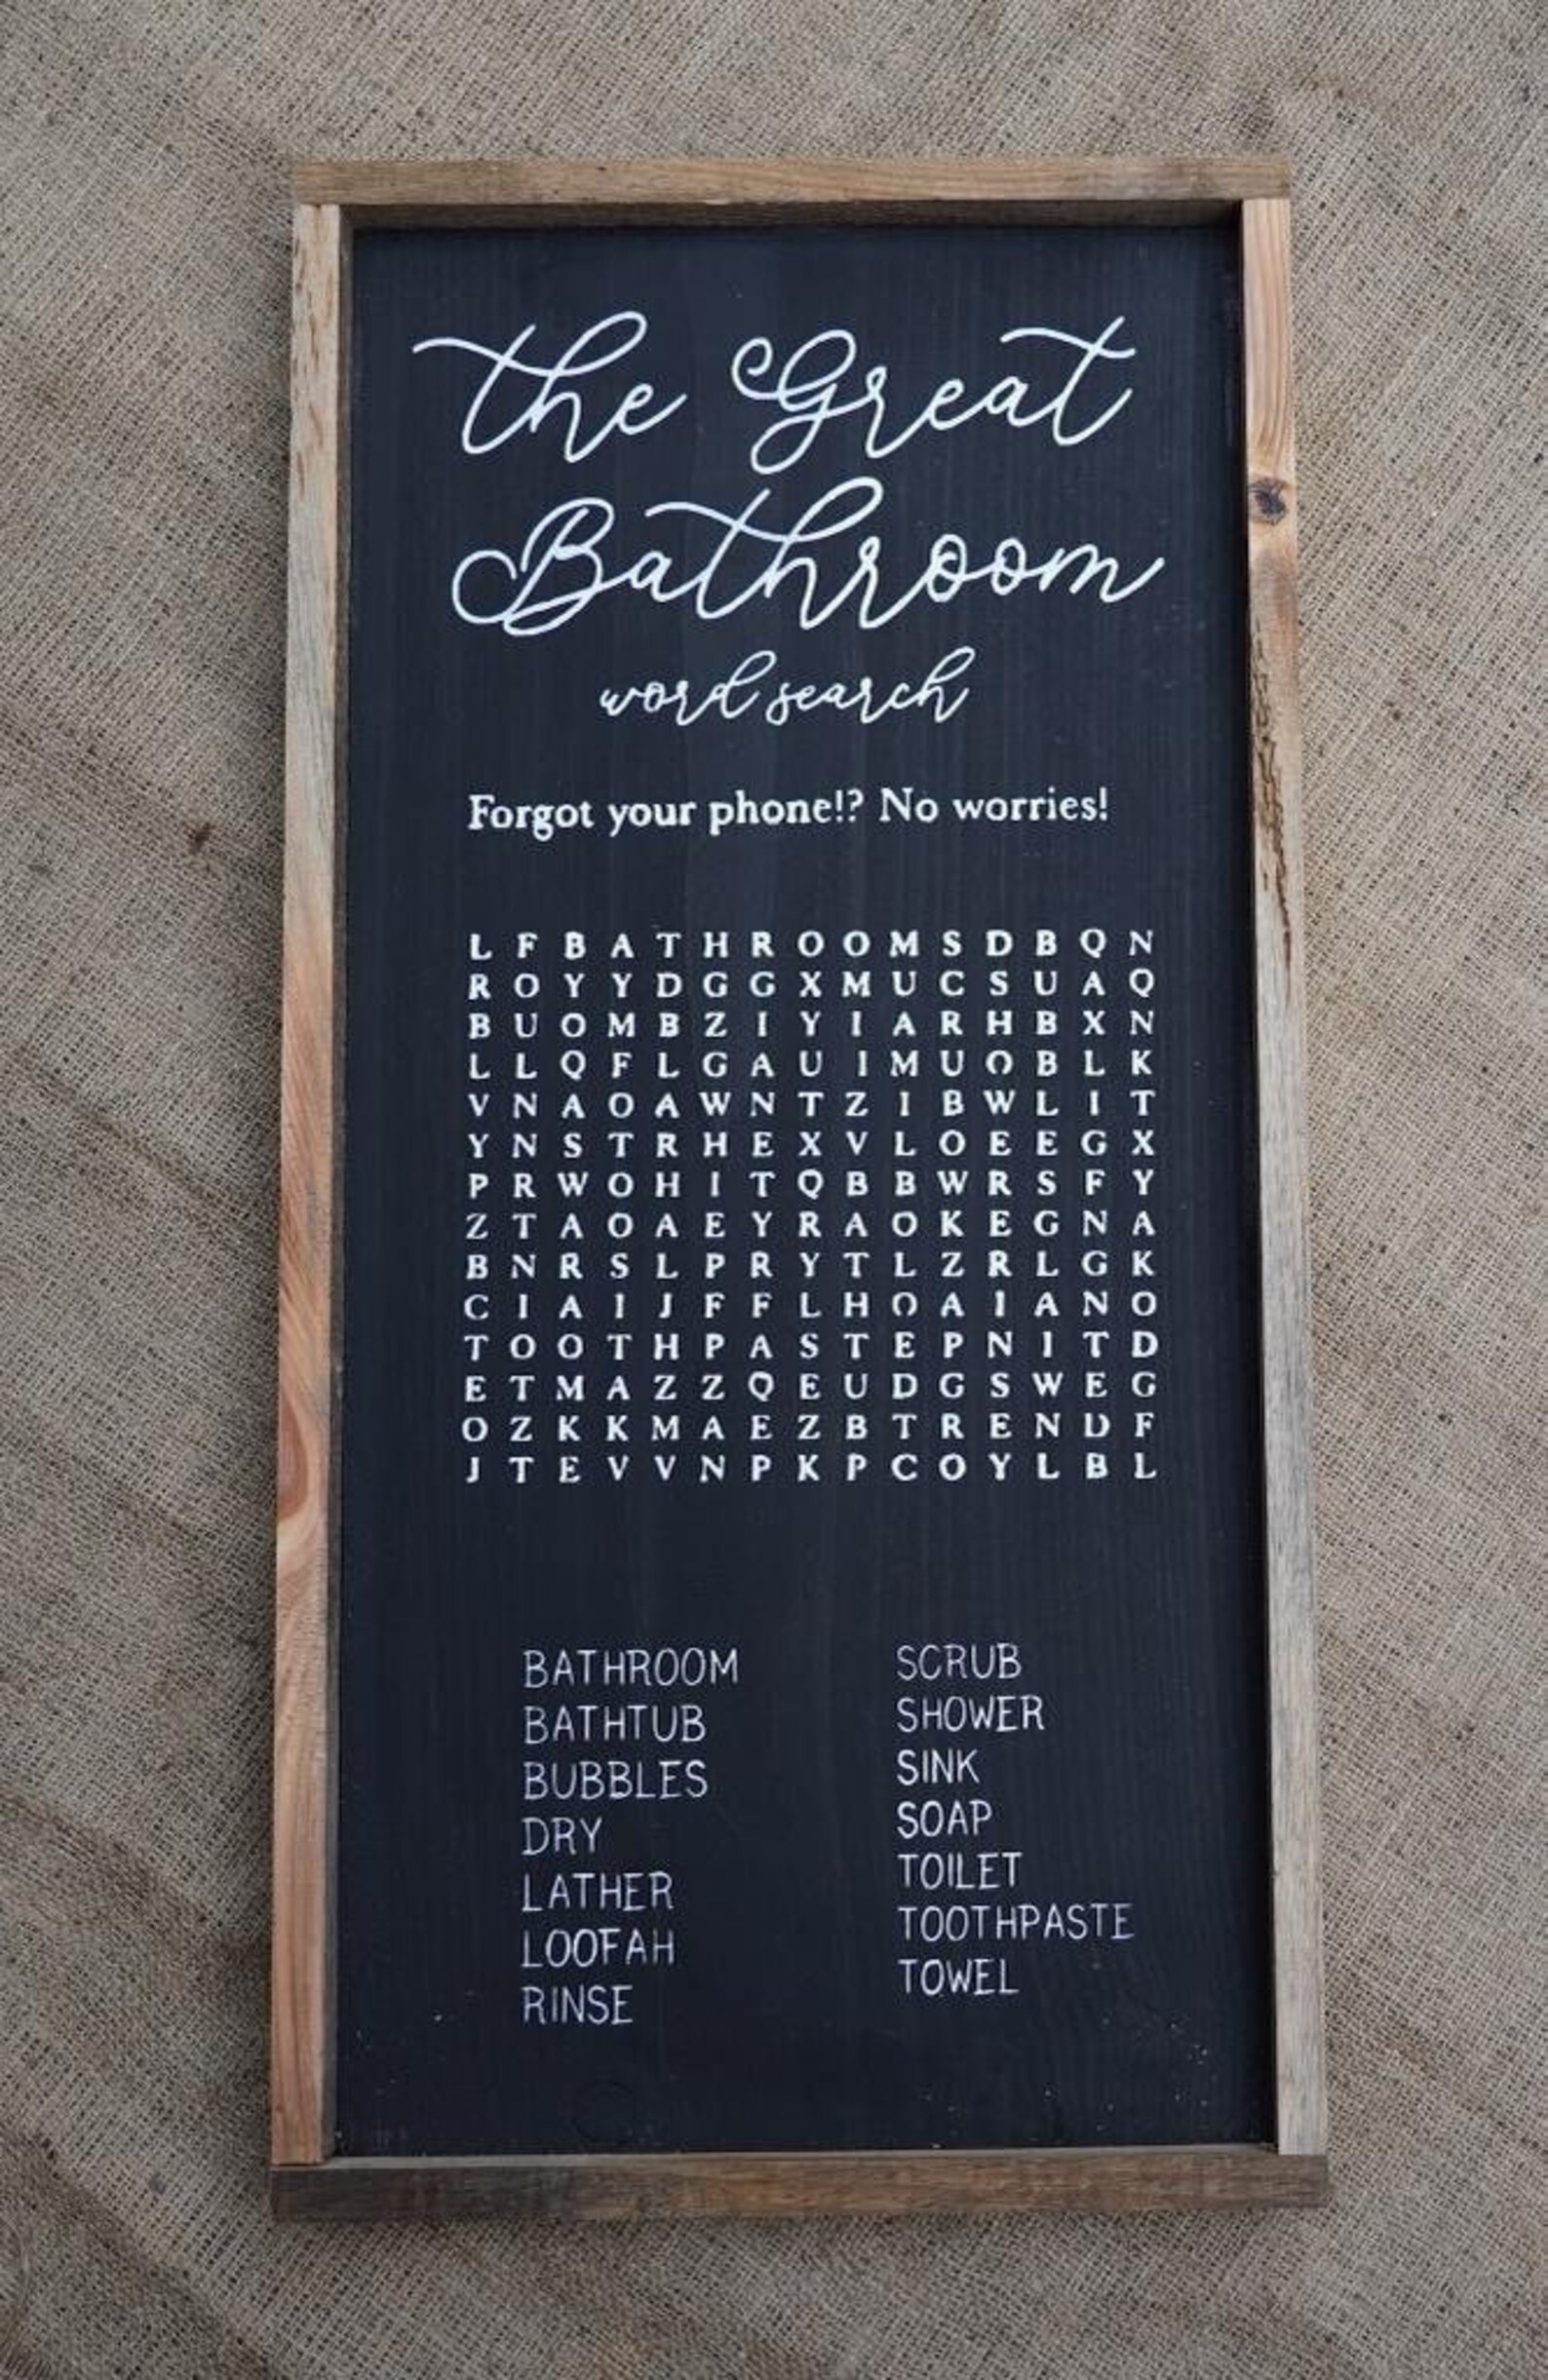 the Great
Bathroom
word search
Forgot your phone!? No worries!
L F B A T H R O O M S D B Q N
R O Y Y D G G X M U C S U A Q
B U O M B Z I Y I A R H B X N
L L Q F L G A U I M U O B L K
V N A O A W N T Z I B W L I T
Y N S T R H E X V L O E E G X
P R W O H I T Q B B W R S F Y
Z T A O A E Y R A O K E G N A
B N R S L P R Y T L Z R L G K
C I A I J F F L H O A I A N O
T O O T H P A S T E P N I T D
E T M A Z Z Q E U D G S W E G
O Z K K M A E Z B T R E N D F
J T E V V N P K P C O Y L B L
BATHROOM
BATHTUB
BUBBLES
DRY
LATHER
LOOFAH
RINSE
SCRUB
SHOWER
SINK
SOAP
TOILET
TOOTHPASTE
TOWEL